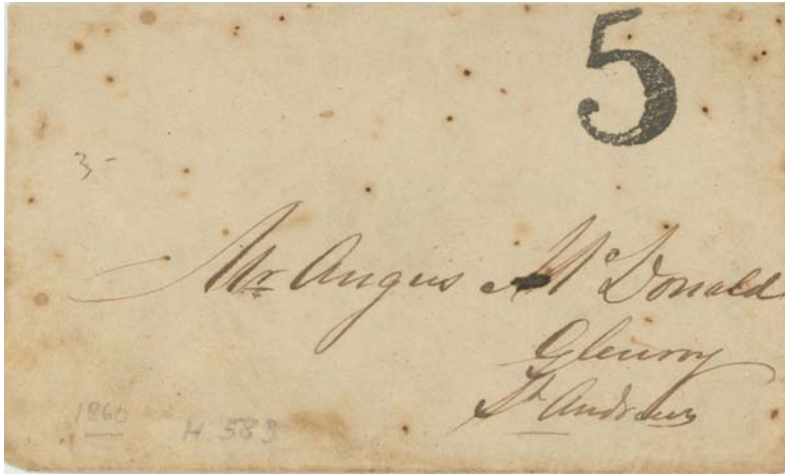 5
3-
Mr Angus McDonald
Glenroy
St Andrews
1860
H 583